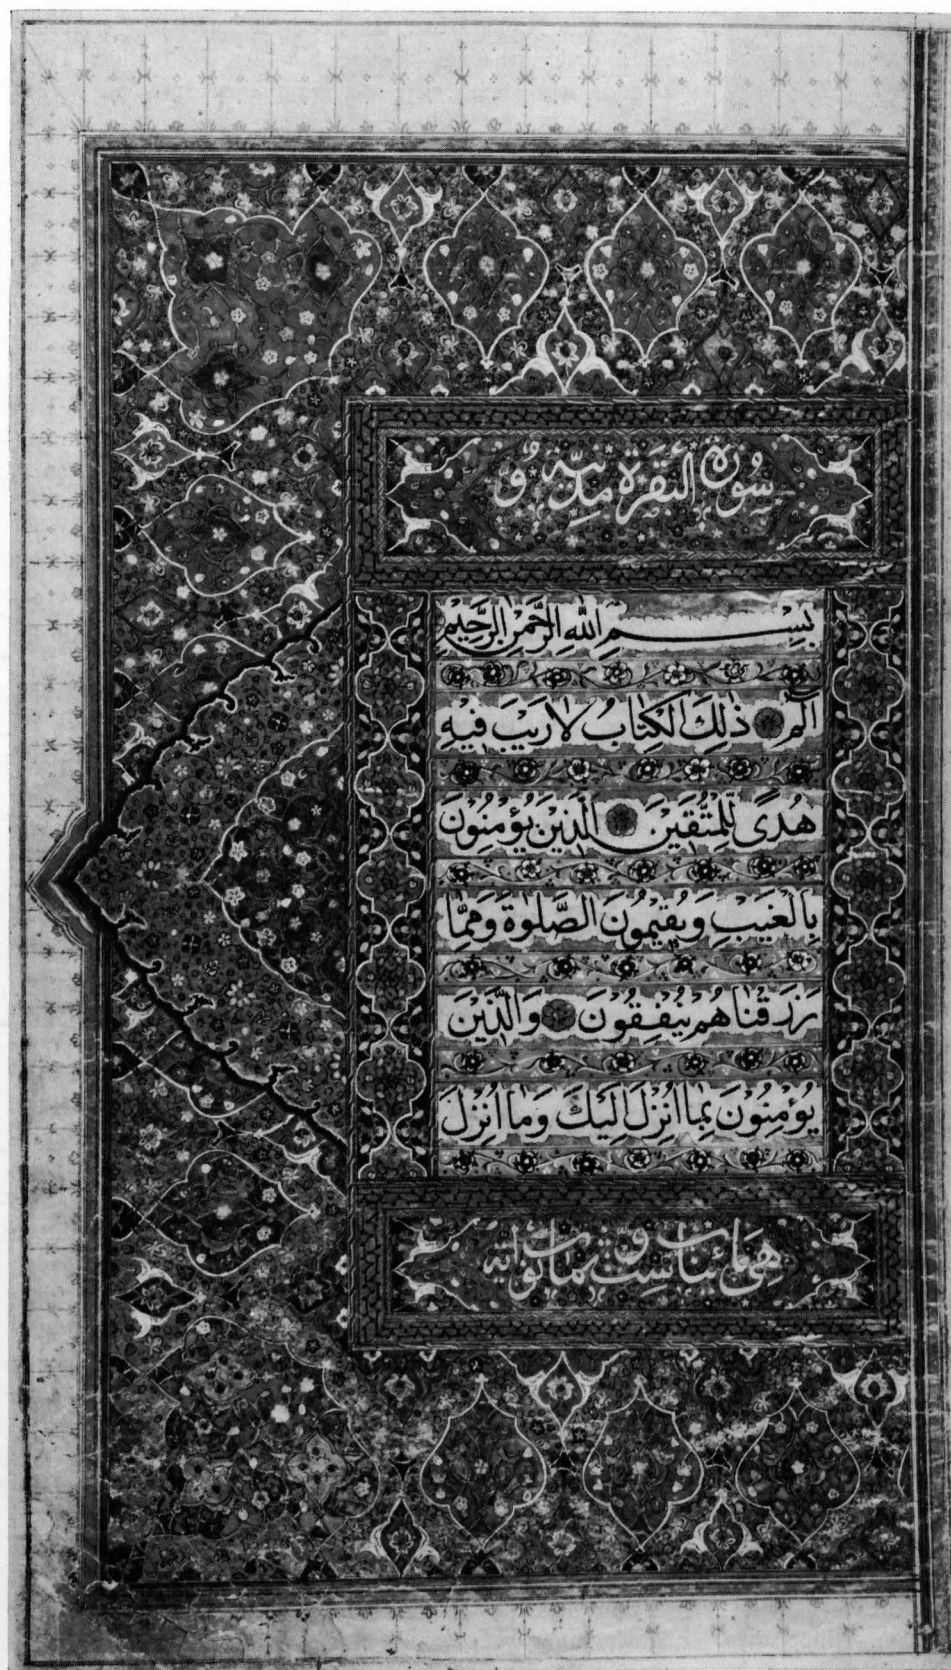 سُورَةُ الْبَقَرَةِ مَدَنِيَّةٌ وَ
بِسْمِ اللهِ الرَّحْمٰنِ الرَّحِيْمِ
الٓمٓ ذٰلِكَ الْكِتَابُ لَا رَيْبَ فِيْهِ
هُدًى لِّلْمُتَّقِيْنَ الَّذِيْنَ يُؤْمِنُوْنَ
بِالْغَيْبِ وَيُقِيْمُونَ الصَّلٰوةَ وَمِمَّا
رَزَقْنَاهُمْ يُنْفِقُوْنَ وَالَّذِيْنَ
يُؤْمِنُوْنَ بِمَا اُنْزِلَ اِلَيْكَ وَمَا اُنْزِلَ
هِيَ مائتان وست ثمانون آية